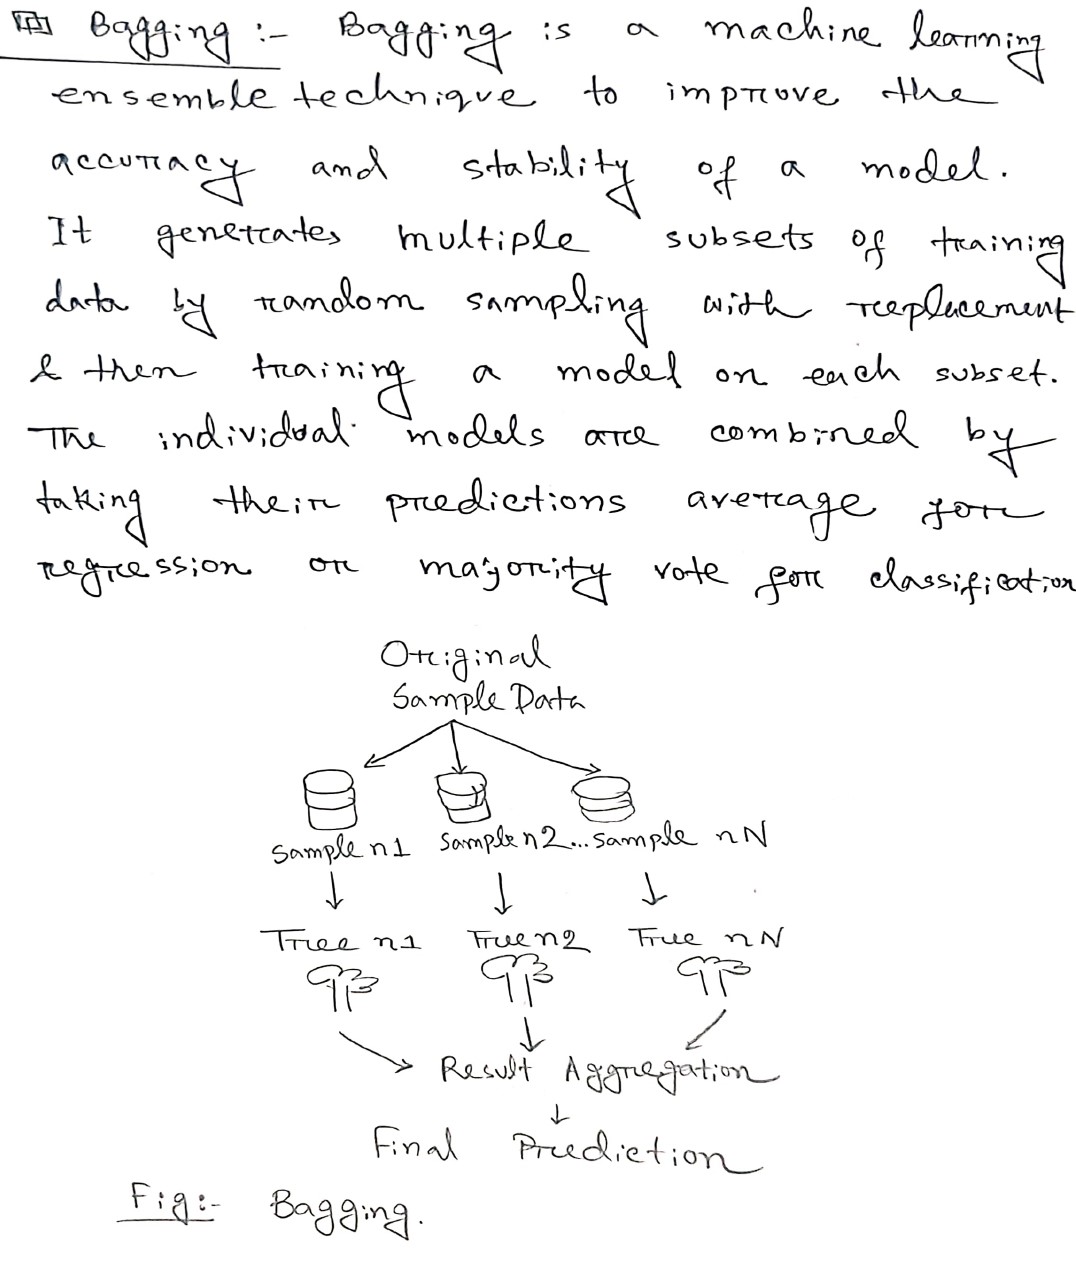 Bagging :- Bagging is a machine learning
ensemble technique to improve the
accuracy and stability of a model.
It generates multiple subsets of training
data by random sampling with replacement
& then training a model on each subset.
The individual models are combined by
taking their predictions average for
regression or majority vote for classification
Original
Sample Data
Sample n1 Sample n2... Sample nN
Tree n1 Tree n2 Tree nN
Result Aggregation
Final Prediction
Fig:- Bagging.